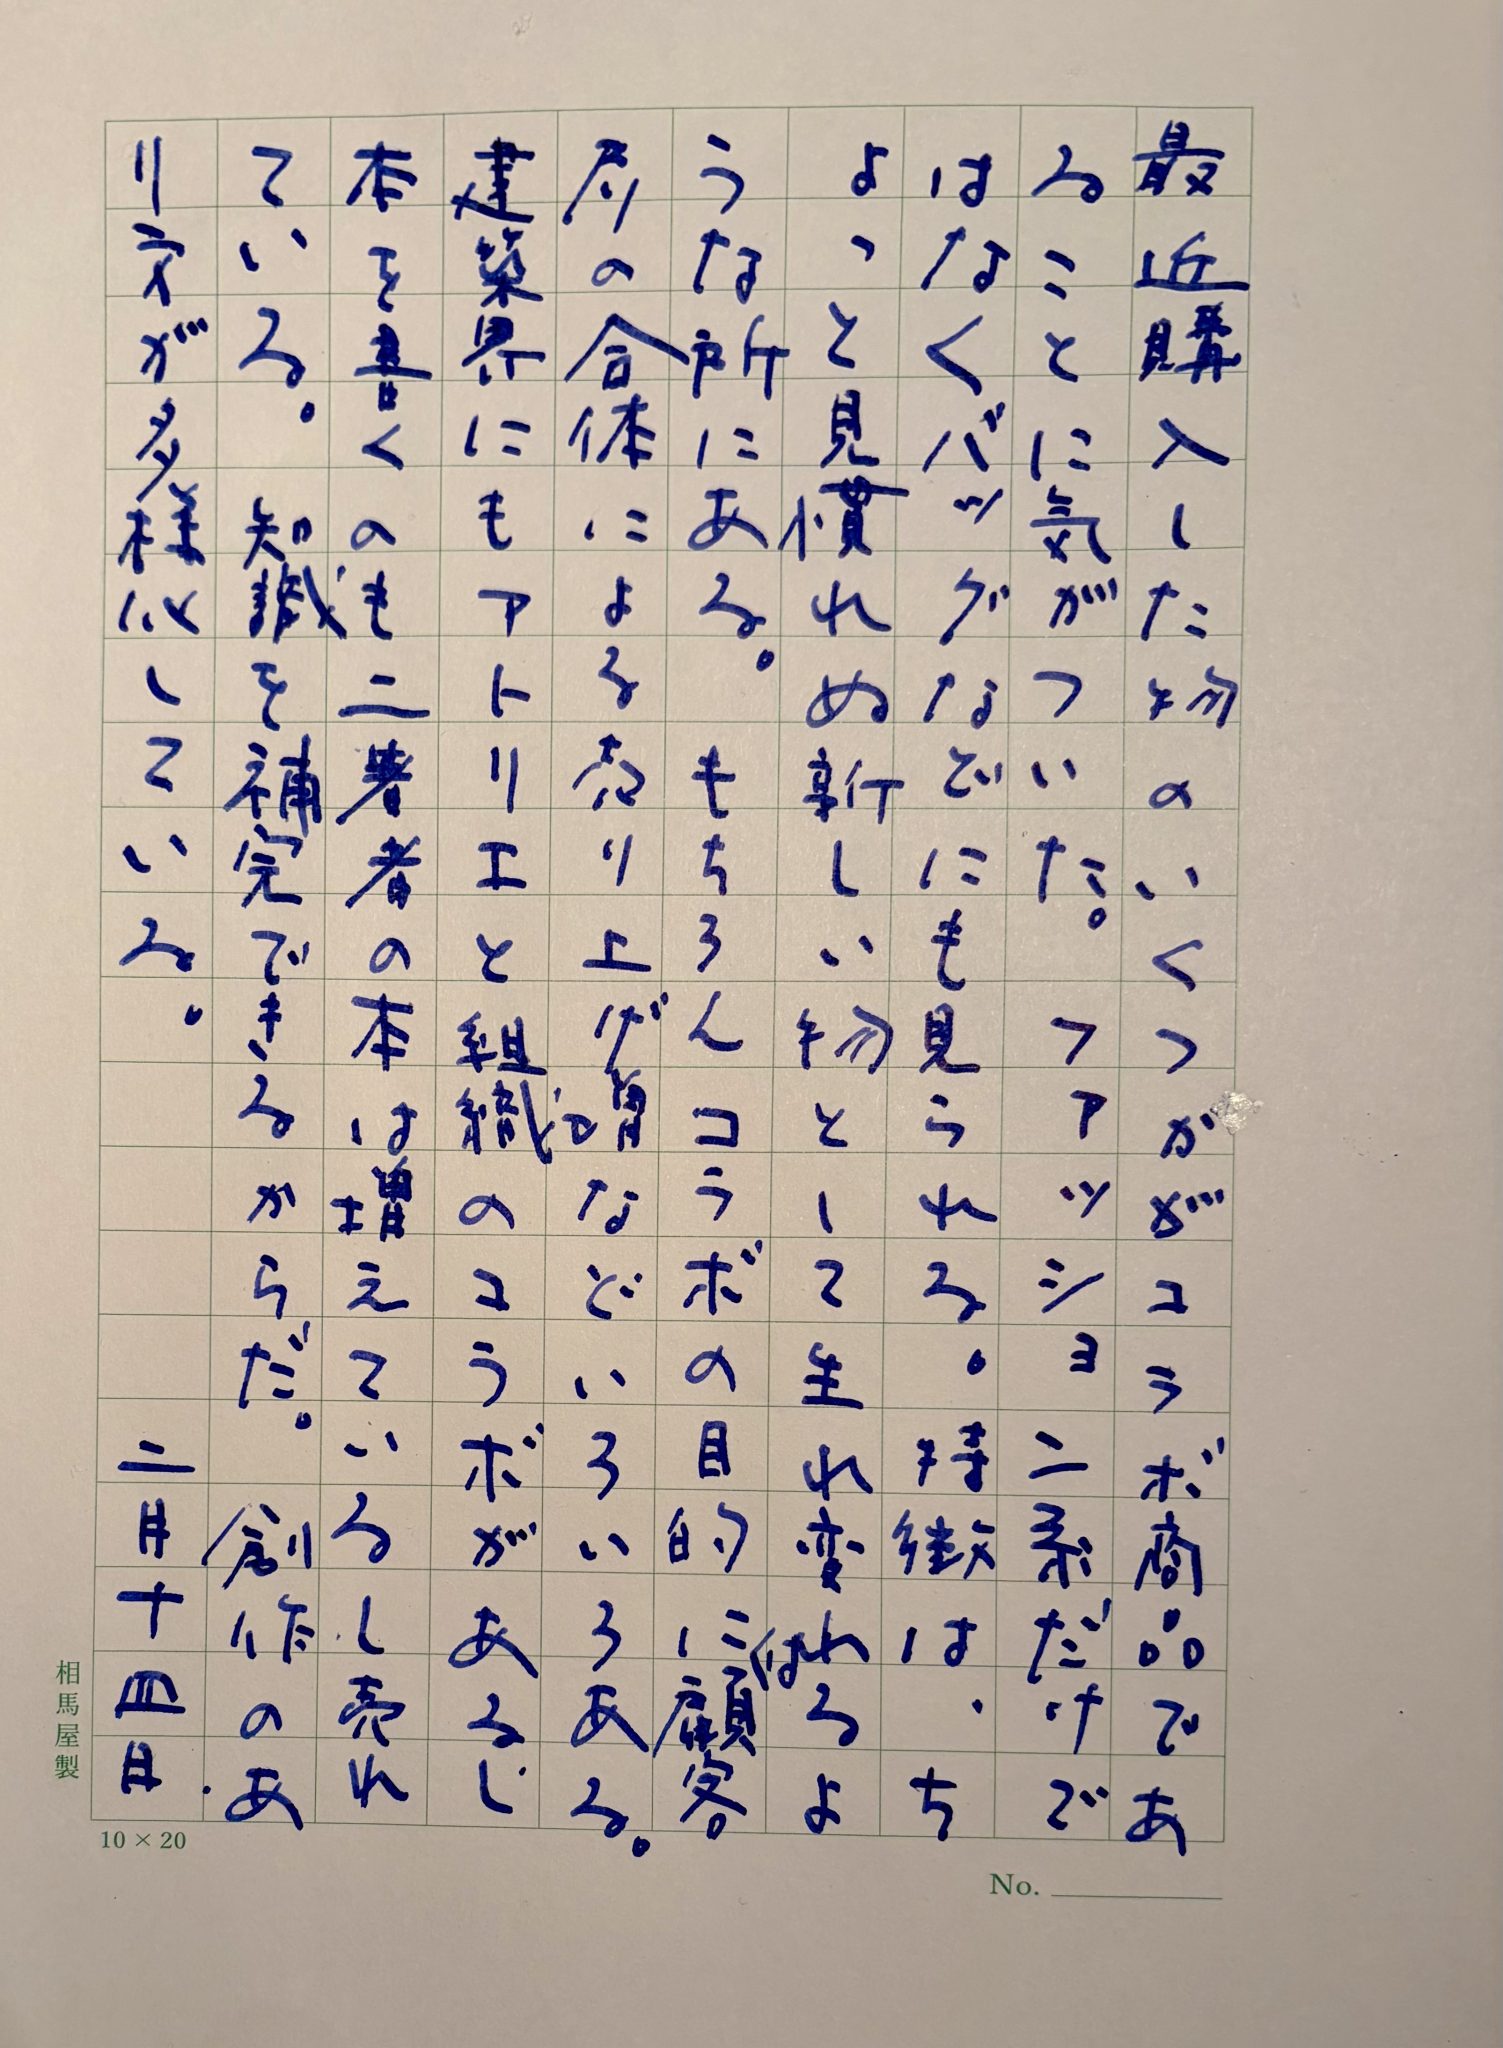 最近購入した物のいくつかがコラボ商品であ
ることに気がついた。ファッション系だけで
はなくバッグなどにも見られる。特徴は、ち
ょっと見慣れぬ新しい物として生れ変れるよ
うな所にある。もちろんコラボの目的には顧客
層の合体による売り上げ増などいろいろある。
建築界にもアトリエと組織のコラボがあるし
本を書くのも二著者の本は増えているし売れ
ている。知識を補完できるからだ。創作のあ
り方が多様化している。 二月十四日
相馬屋製
10×20
No.